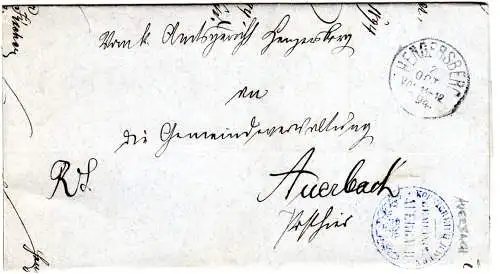 Vom k. Amtsgericht Hengersberg
an
die Gemeindeverwaltung
R.S.
Auerbach
Posthier
HENGERSBERG
OKT
VM 11-12
94
AUERBACH